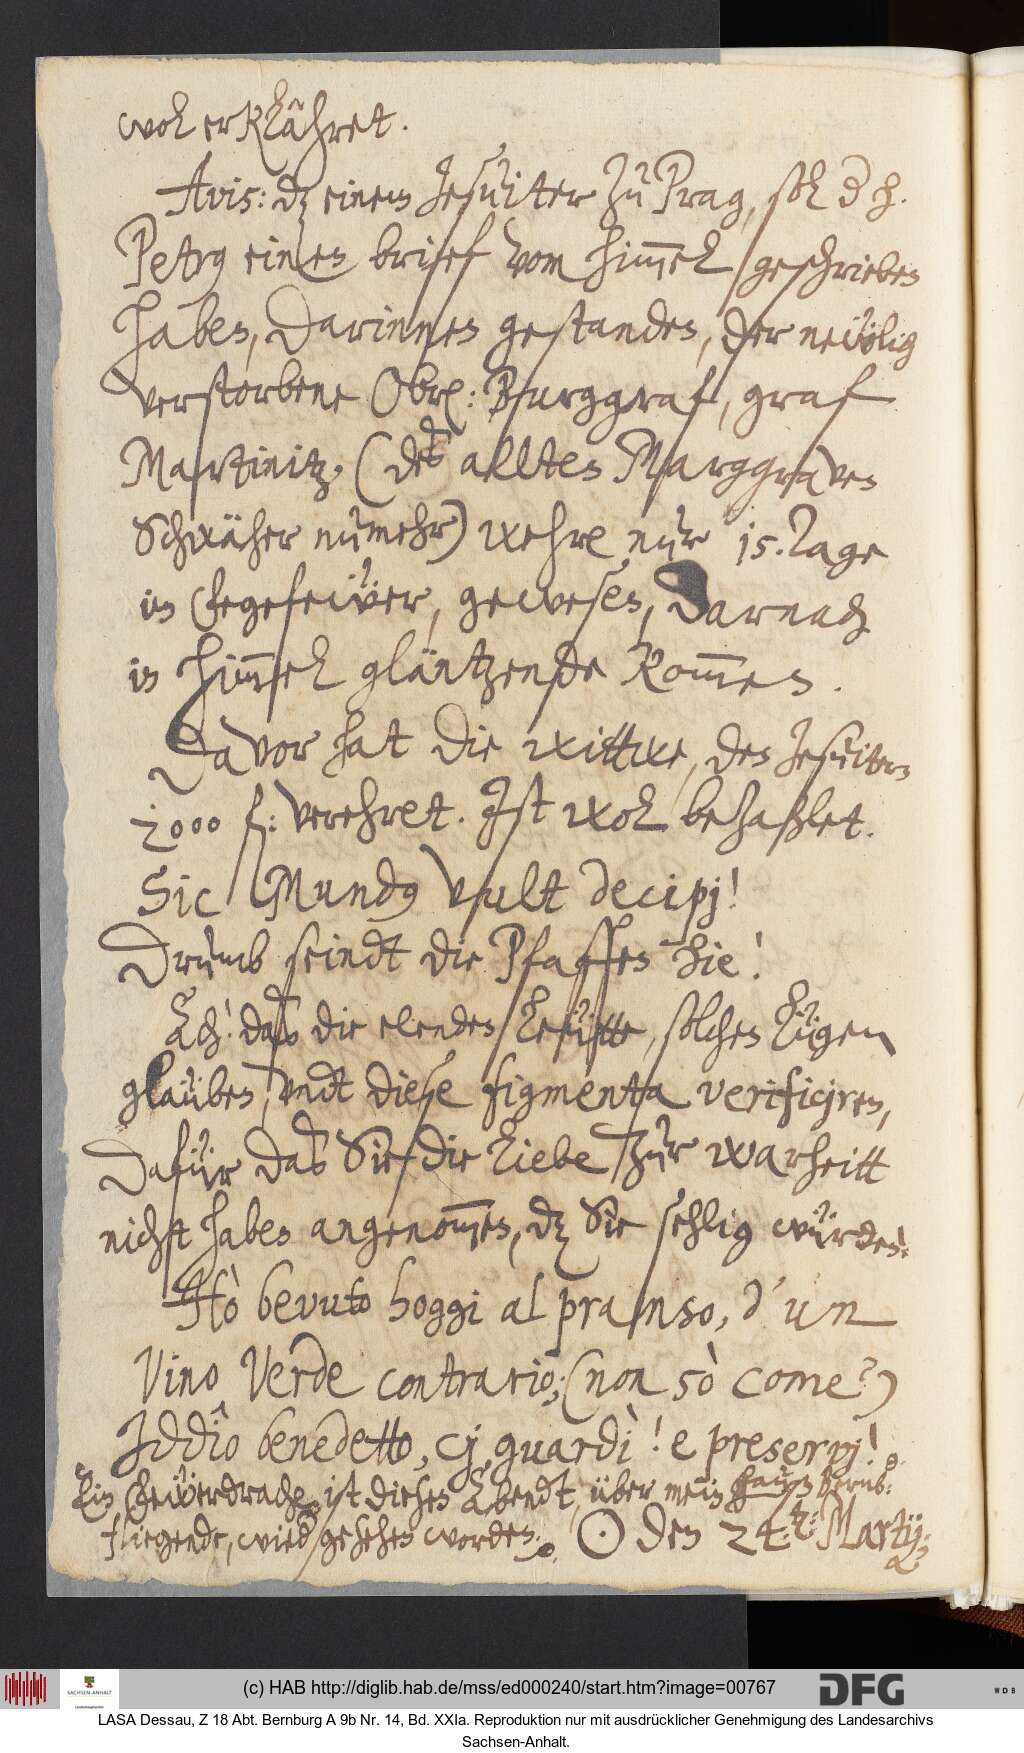 wol erklähret.
Avis: dz einem Jesuiter zu Prag, sol d h.
Petrus einen brief vom himmel geschrieben
haben, darinnen gestanden, der neẅlig
verstorbene Obr: Burggraf, graf
Martinitz, (deß allten Marggraven
Schwäher numehr) wehre nur 15. Tage
in fegefeẅer, gewesen, darnach
in himmel gläntzende kommen.
Davor hat die wittwe, den Jesuitern
2000 f: verehret. Jst wol bezahlet.
Sic Mundus vult decipj!
Drumb seindt die Pfaffen hie!
Ach! daß die elenden Leütte, solchen lügen
glauben, undt diese figmenta verificjren,
Dafür daß Sie die Liebe zur warheitt
nicht haben angenommen, dz Sie sehlig würden.
Hò bevuto hoggi al pranso, d'un
Vino Verde contrario; (non sò come?)
Jddîo benedetto, cj guardi! e preservj!
Ein feẅerdrache, ist diesen Abendt, über mein hauß herumb:
fliegende, wied gesehen worden.
☉ den 24.t: Martij:
(c) HAB http://diglib.hab.de/mss/ed000240/start.htm?image=00767
DFG
WDB
SACHSEN-ANHALT
LASA Dessau, Z 18 Abt. Bernburg A 9b Nr. 14, Bd. XXIa. Reproduktion nur mit ausdrücklicher Genehmigung des Landesarchivs
Sachsen-Anhalt.